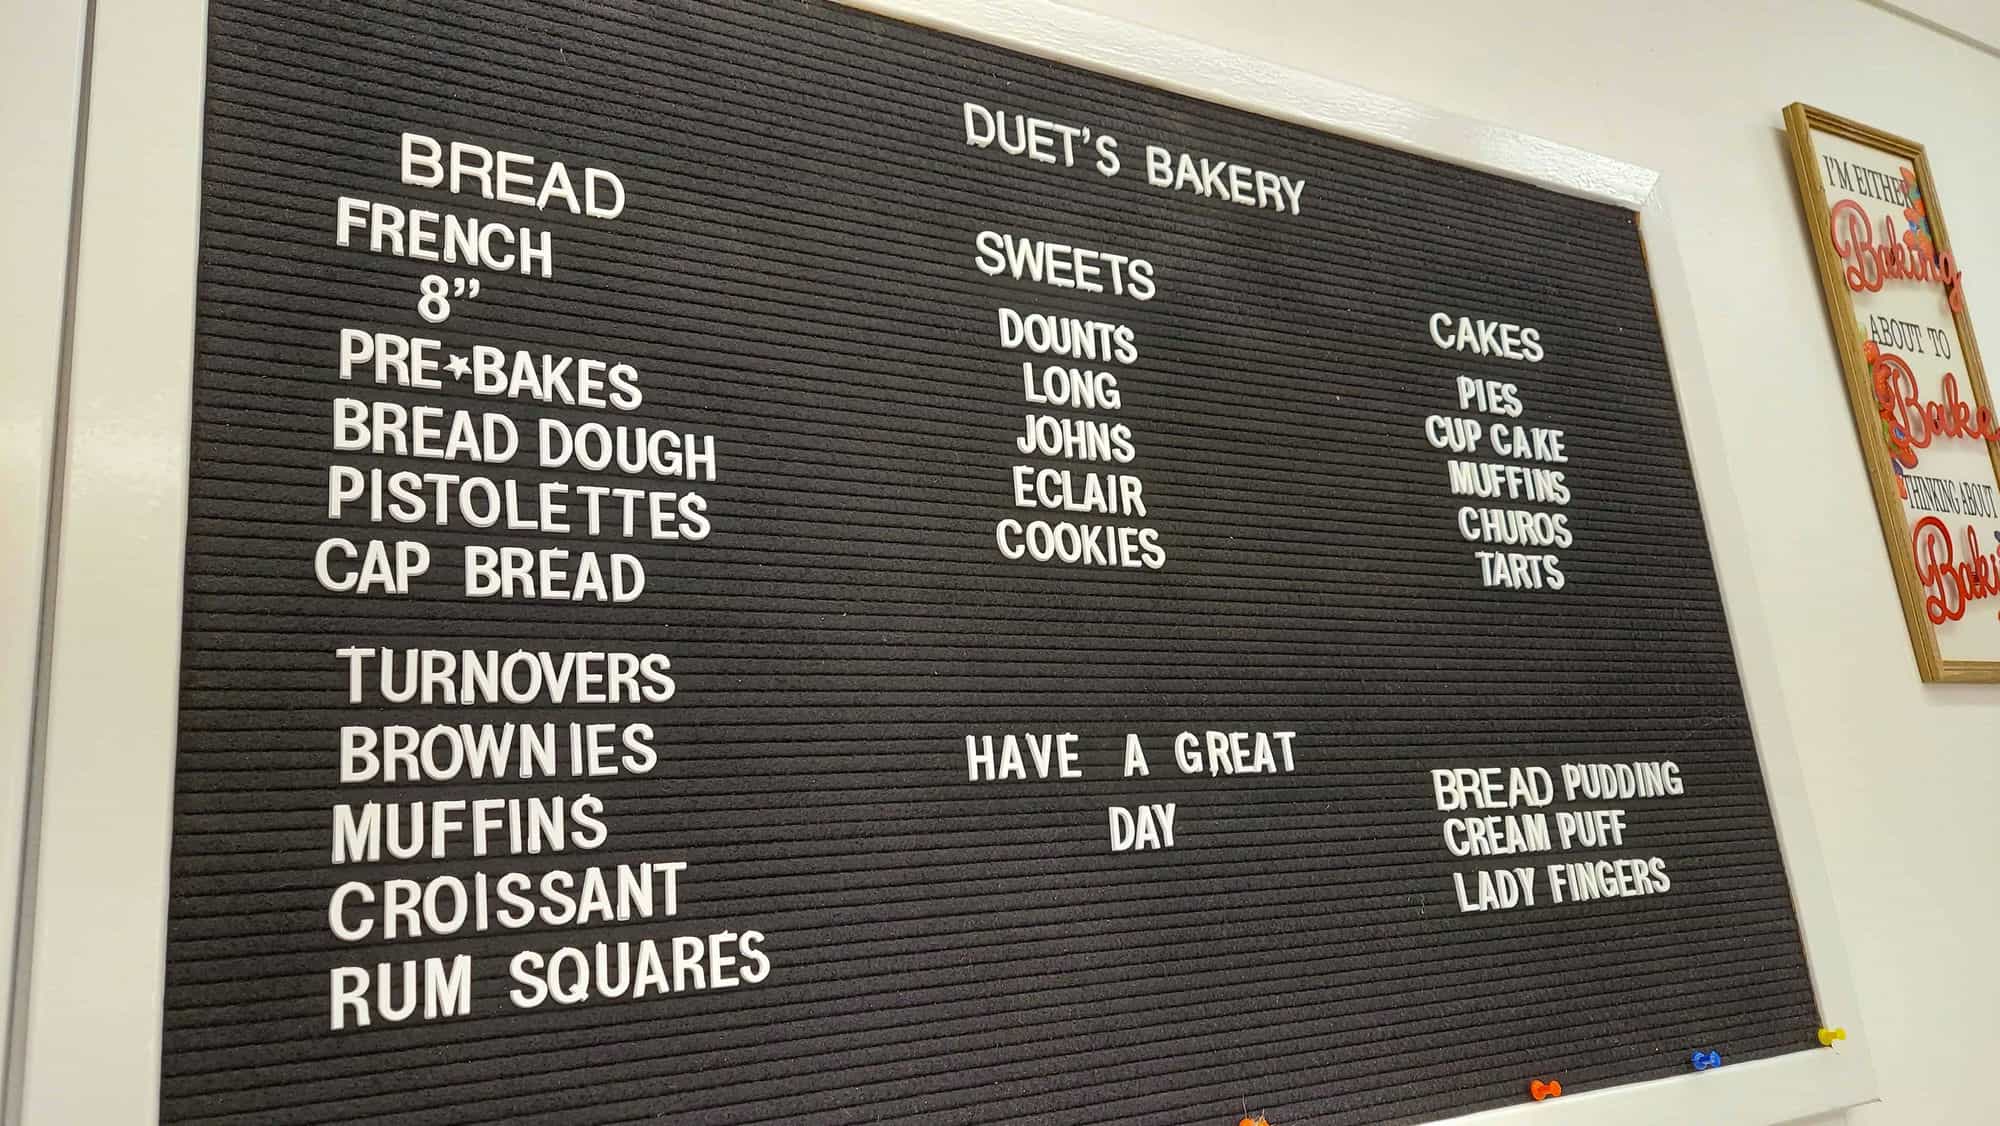 DUET'S BAKERY
BREAD
FRENCH
8”
PRE★BAKES
BREAD DOUGH
PISTOLETTES
CAP BREAD
TURNOVERS
BROWNIES
MUFFINS
CROISSANT
RUM SQUARES
SWEETS
DOUNTS
LONG
JOHNS
ECLAIR
COOKIES
HAVE A GREAT
DAY
CAKES
PIES
CUP CAKE
MUFFINS
CHUROS
TARTS
BREAD PUDDING
CREAM PUFF
LADY FINGERS
I'M EITHER
Baking
ABOUT TO
Bake
THINKING ABOUT